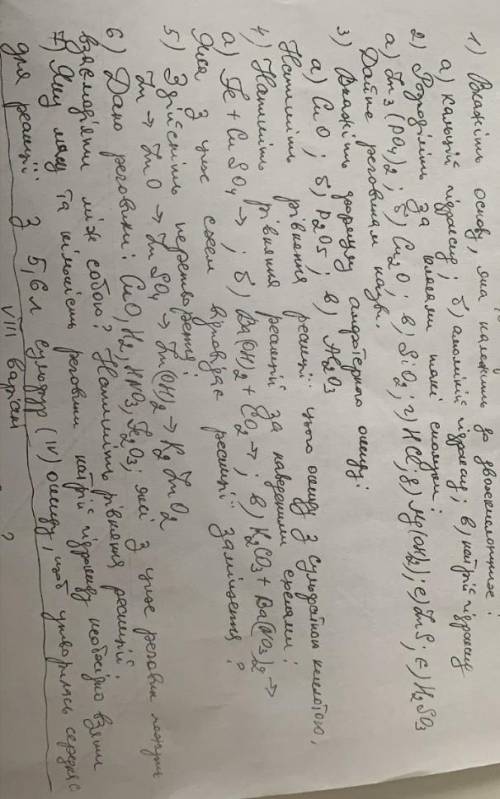 1) Вкажіть основу, яка належить до двокислотних:
а) кальцій гідроксид; б) амоній гідроксид; в) натрій гідроксид
2) Розподіліть за класами такі сполуки:
а) Zn3(PO4)2; б) Cu2O; в) SiO2; г) HCl; д) Mg(OH)2; е) ZnS; є) H2SO3
Дайте речовинам назви.
3) Вкажіть формулу амфотерного оксиду:
а) CuO; б) P2O5; в) Al2O3
Напишіть рівняння реакції цього оксиду з сульфатною кислотою,
4) Напишіть рівняння реакцій за наведеними схемами:
а) Fe + CuSO4 →; б) Ba(OH)2 + CO2 →; в) K2CO3 + Ba(NO3)2 →
Яка з цих схем відповідає реакції заміщення?
5) Здійсніть перетворення:
Zn → ZnO → ZnSO4 → Zn(OH)2 → K2ZnO2
6) Дано речовини: CuO, H2, HNO3, Fe2O3, які з цих речовин можуть
взаємодіяти між собою? Напишіть рівняння реакцій.
7) Яку масу та кількість речовини натрій гідроксиду необхідно взяти
для реакції з 5,6 л сульфур (IV) оксиду, щоб утворилась середня с
VIII варіант ?